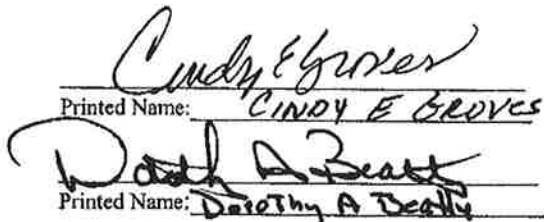 Cindy E Groves
Printed Name: CINDY E GROVES
Doroth A Beatty
Printed Name: Dorothy A Beatty